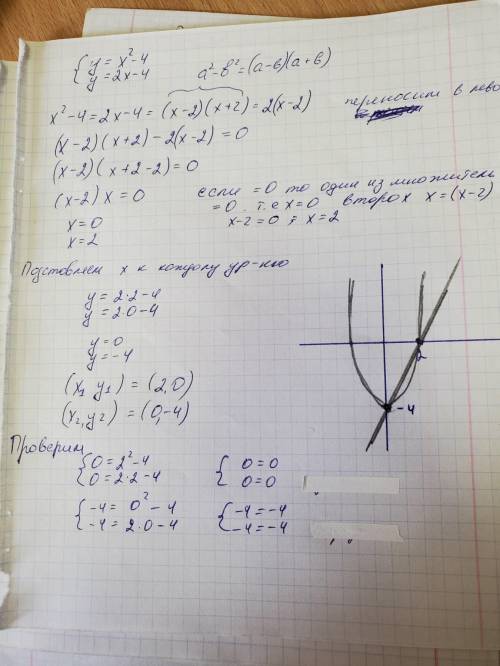 { y = x² - 4
y = 2x - 4
a² - b² = (a - b)(a + b)
x² - 4 = 2x - 4 = (x - 2)(x + 2) = 2(x - 2)
переносим в лево
(x - 2)(x + 2) - 2(x - 2) = 0
(x - 2)(x + 2 - 2) = 0
(x - 2) x = 0
если = 0 то один из множитель
= 0 т.е x = 0 второй x = (x - 2)
x - 2 = 0 x = 2
x = 0
x = 2
Подставляем x к каждому ур-нию
y = 2·2 - 4
y = 2·0 - 4
y = 0
y = -4
(x₁, y₁) = (2, 0)
(x₂, y₂) = (0, -4)
2
-4
Проверим
{ 0 = 2² - 4
0 = 2·2 - 4
{ 0 = 0
0 = 0
{ -4 = 0² - 4
-4 = 2·0 - 4
{ -4 = -4
-4 = -4